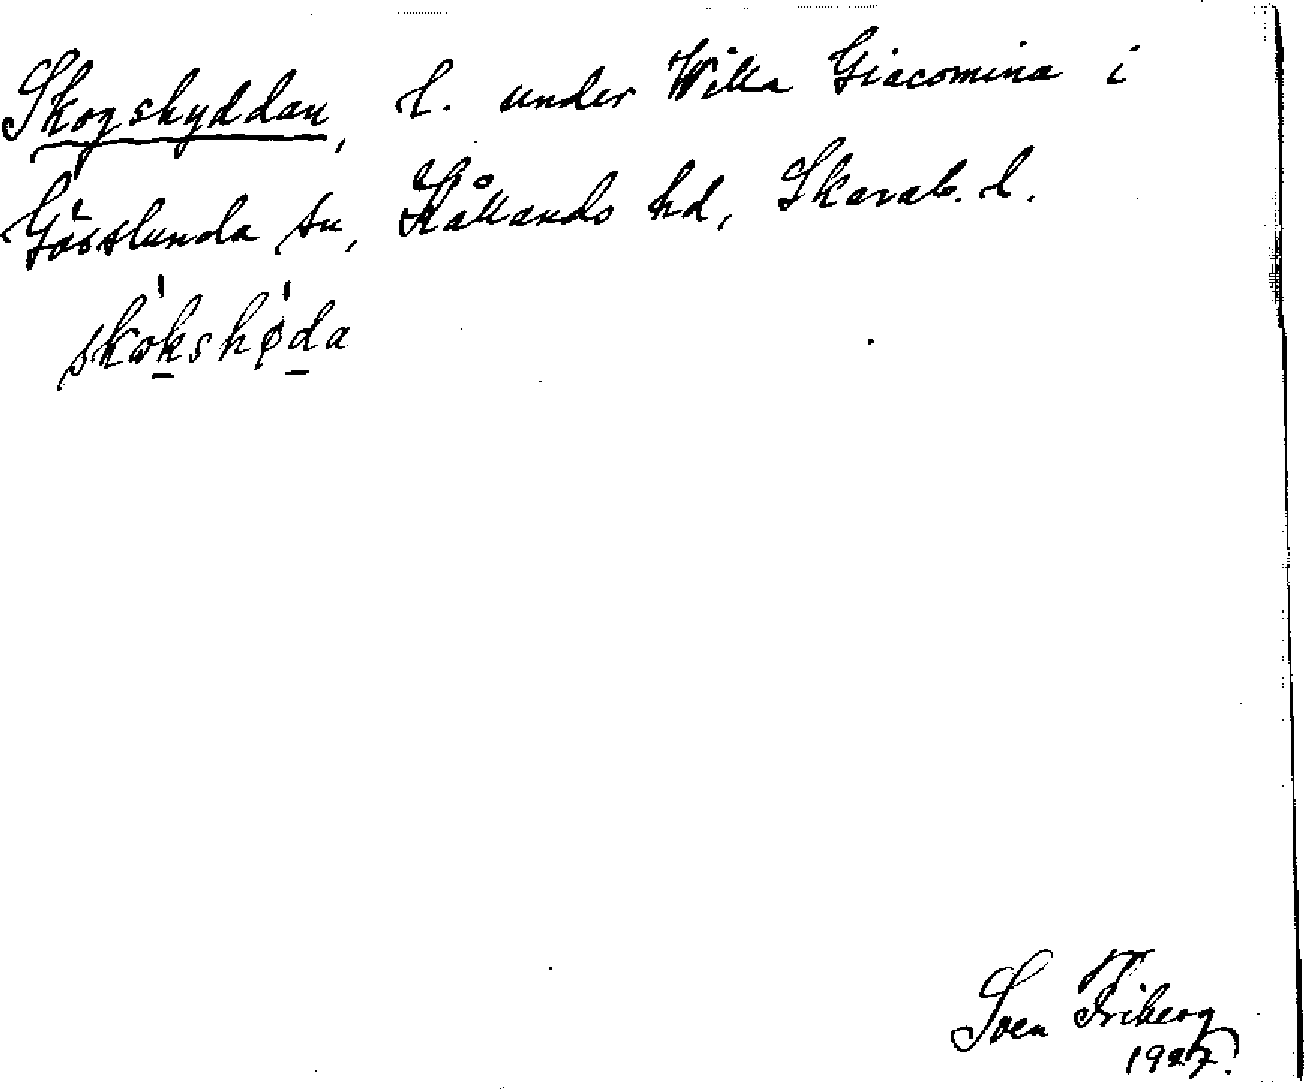 Skogshyddan, l. under Willa Giacomina i
Gösslunda sn, Kållands hd, Skarab. l.
skokshøda
Sven Friberg
1927.